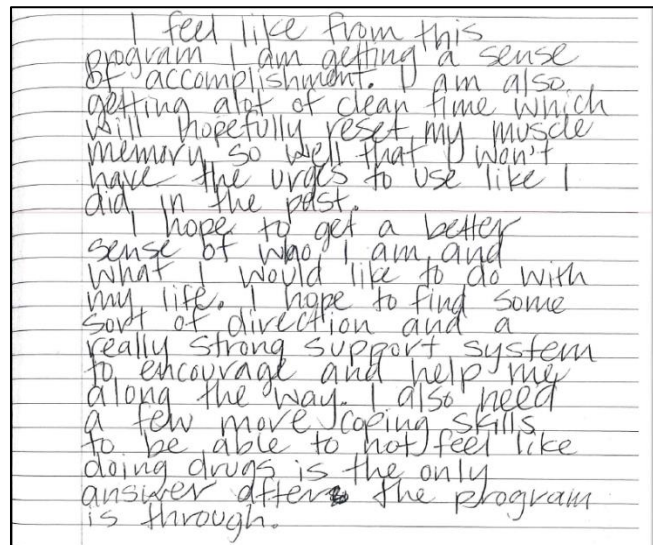 I feel like from this
program I am getting a sense
of accomplishment. I am also
getting alot of clean time which
will hopefully reset my muscle
memory so well that I won't
have the urges to use like I
did in the past.
I hope to get a better
sense of who I am and
what I would like to do with
my life. I hope to find some
sort of direction and a
really strong support system
to encourage and help me
along the way. I also need
a few more coping skills
to be able to not feel like
doing drugs is the only
answer after the program
is through.